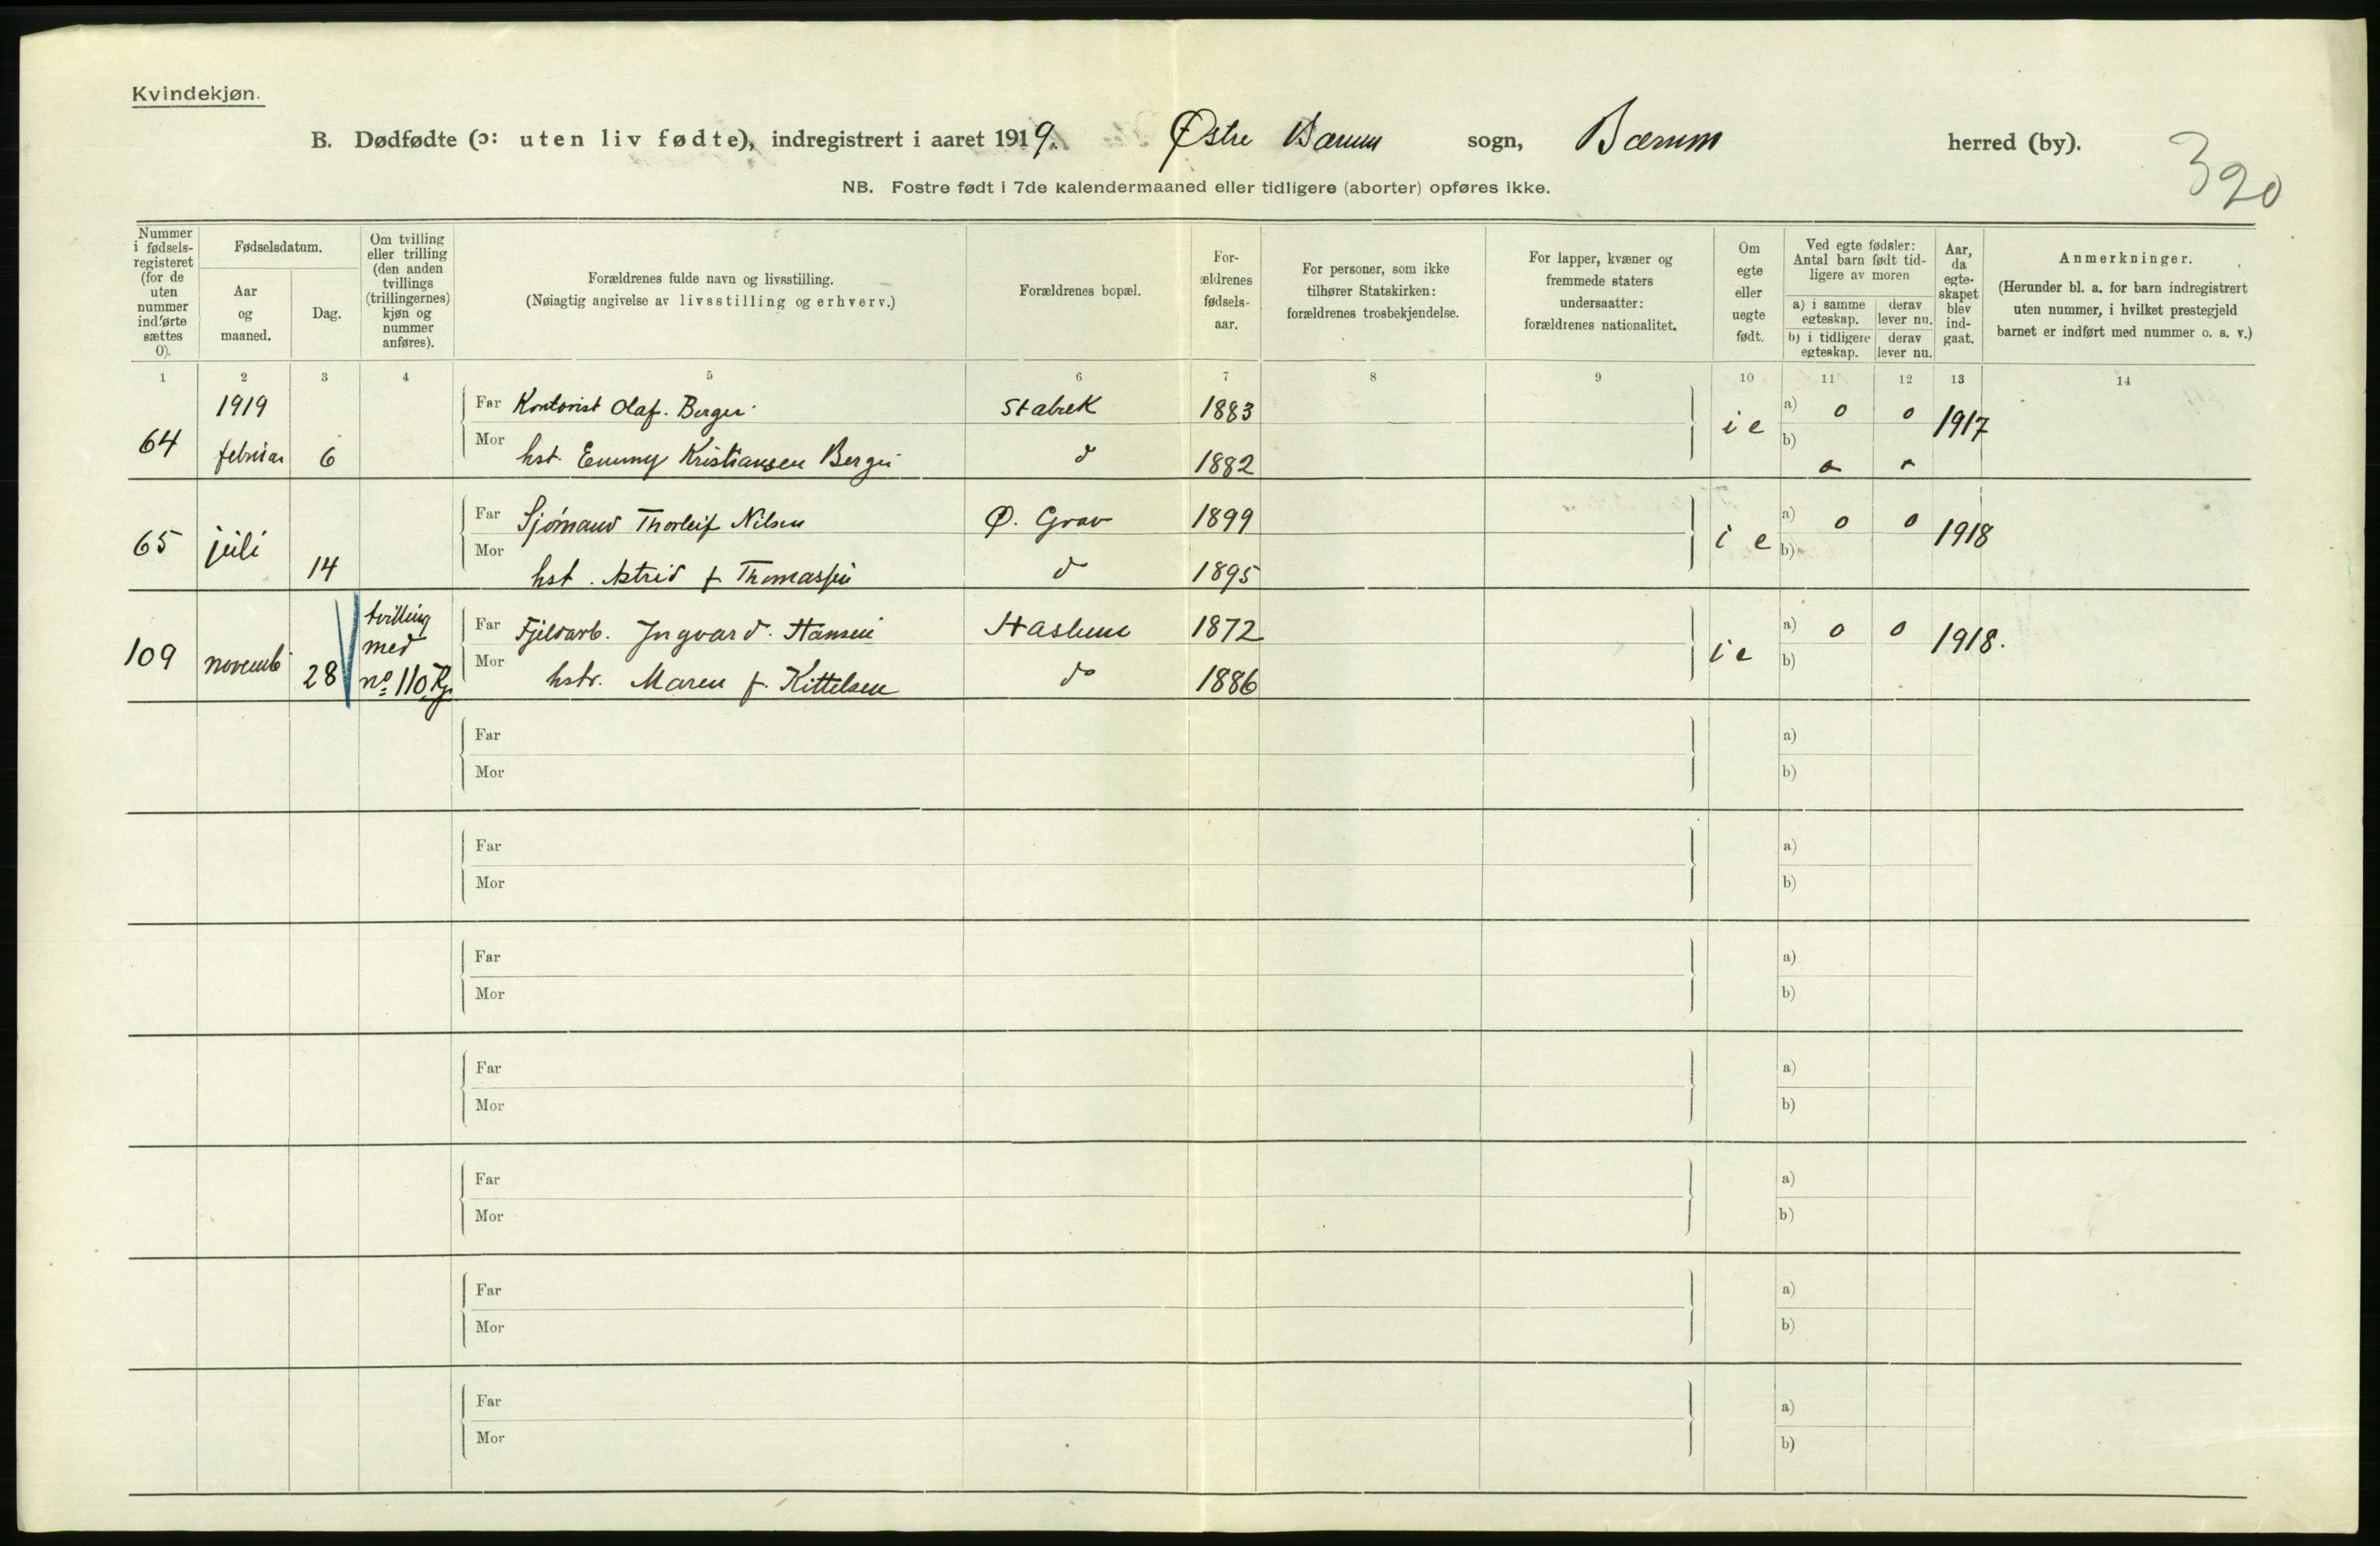 Kvindekjøn.
B. Dødfødte (ɔ: uten liv fødte), indregistrert i aaret 1919. Østre Bærum sogn, Bærum herred (by).
320
NB. Fostre født i 7de kalendermaaned eller tidligere (aborter) opføres ikke.
Nummer i fødsels-registeret (for de uten nummer indførte sættes 0).
Fødselsdatum.
Aar og maaned.
Dag.
Om tvilling eller trilling (den anden tvillings (trillingernes) kjøn og nummer anføres).
Forældrenes fulde navn og livsstilling.
(Nøiagtig angivelse av livsstilling og erhverv.)
Forældrenes bopæl.
For-ældrenes fødsels-aar.
For personer, som ikke tilhører Statskirken: forældrenes trosbekjendelse.
For lapper, kvæner og fremmede staters undersaatter: forældrenes nationalitet.
Om egte eller uegte født.
Ved egte fødsler: Antal barn født tid-ligere av moren
a) i samme egteskap.
derav lever nu.
b) i tidligere egteskap.
derav lever nu.
Aar, da egte-skapet blev ind-gaat.
Anmerkninger.
(Herunder bl. a. for barn indregistrert uten nummer, i hvilket prestegjeld barnet er indført med nummer o. s. v.)
1 2 3 4 5 6 7 8 9 10 11 12 13 14
1919 Far Kontorist Olaf. Berger Stabek 1883 a) 0 0
64 februar 6 Mor hst. Emmy Kristiansen Berger d 1882 i e b) 0 0 1917
Far Sjømand Thorleif Nilsen Ø. Grav 1899 a) 0 0
65 juli 14 Mor hst. Astrid f. Thomassen d 1895 i e b) 1918
tvilling med no 110. Kj.
Far Fjeldarb. Ingvard. Hansen Haslum 1872 a) 0 0
109 novemb 28 Mor hstr. Maren f. Kittelsen do 1886 i e b) 1918.
Far a)
Mor b)
Far a)
Mor b)
Far a)
Mor b)
Far a)
Mor b)
Far a)
Mor b)
Far a)
Mor b)
Far a)
Mor b)